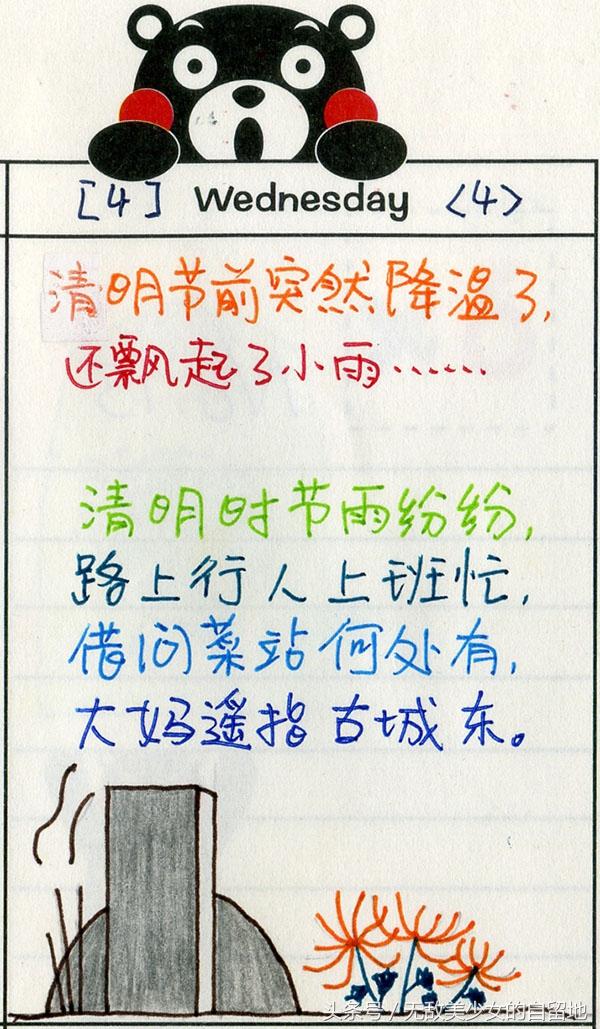 [4] Wednesday <4>
清明节前突然降温了,
还飘起了小雨……
清明时节雨纷纷,
路上行人上班忙,
借问菜站何处有,
大妈遥指古城东。
头条号/无敌美少女的自留地